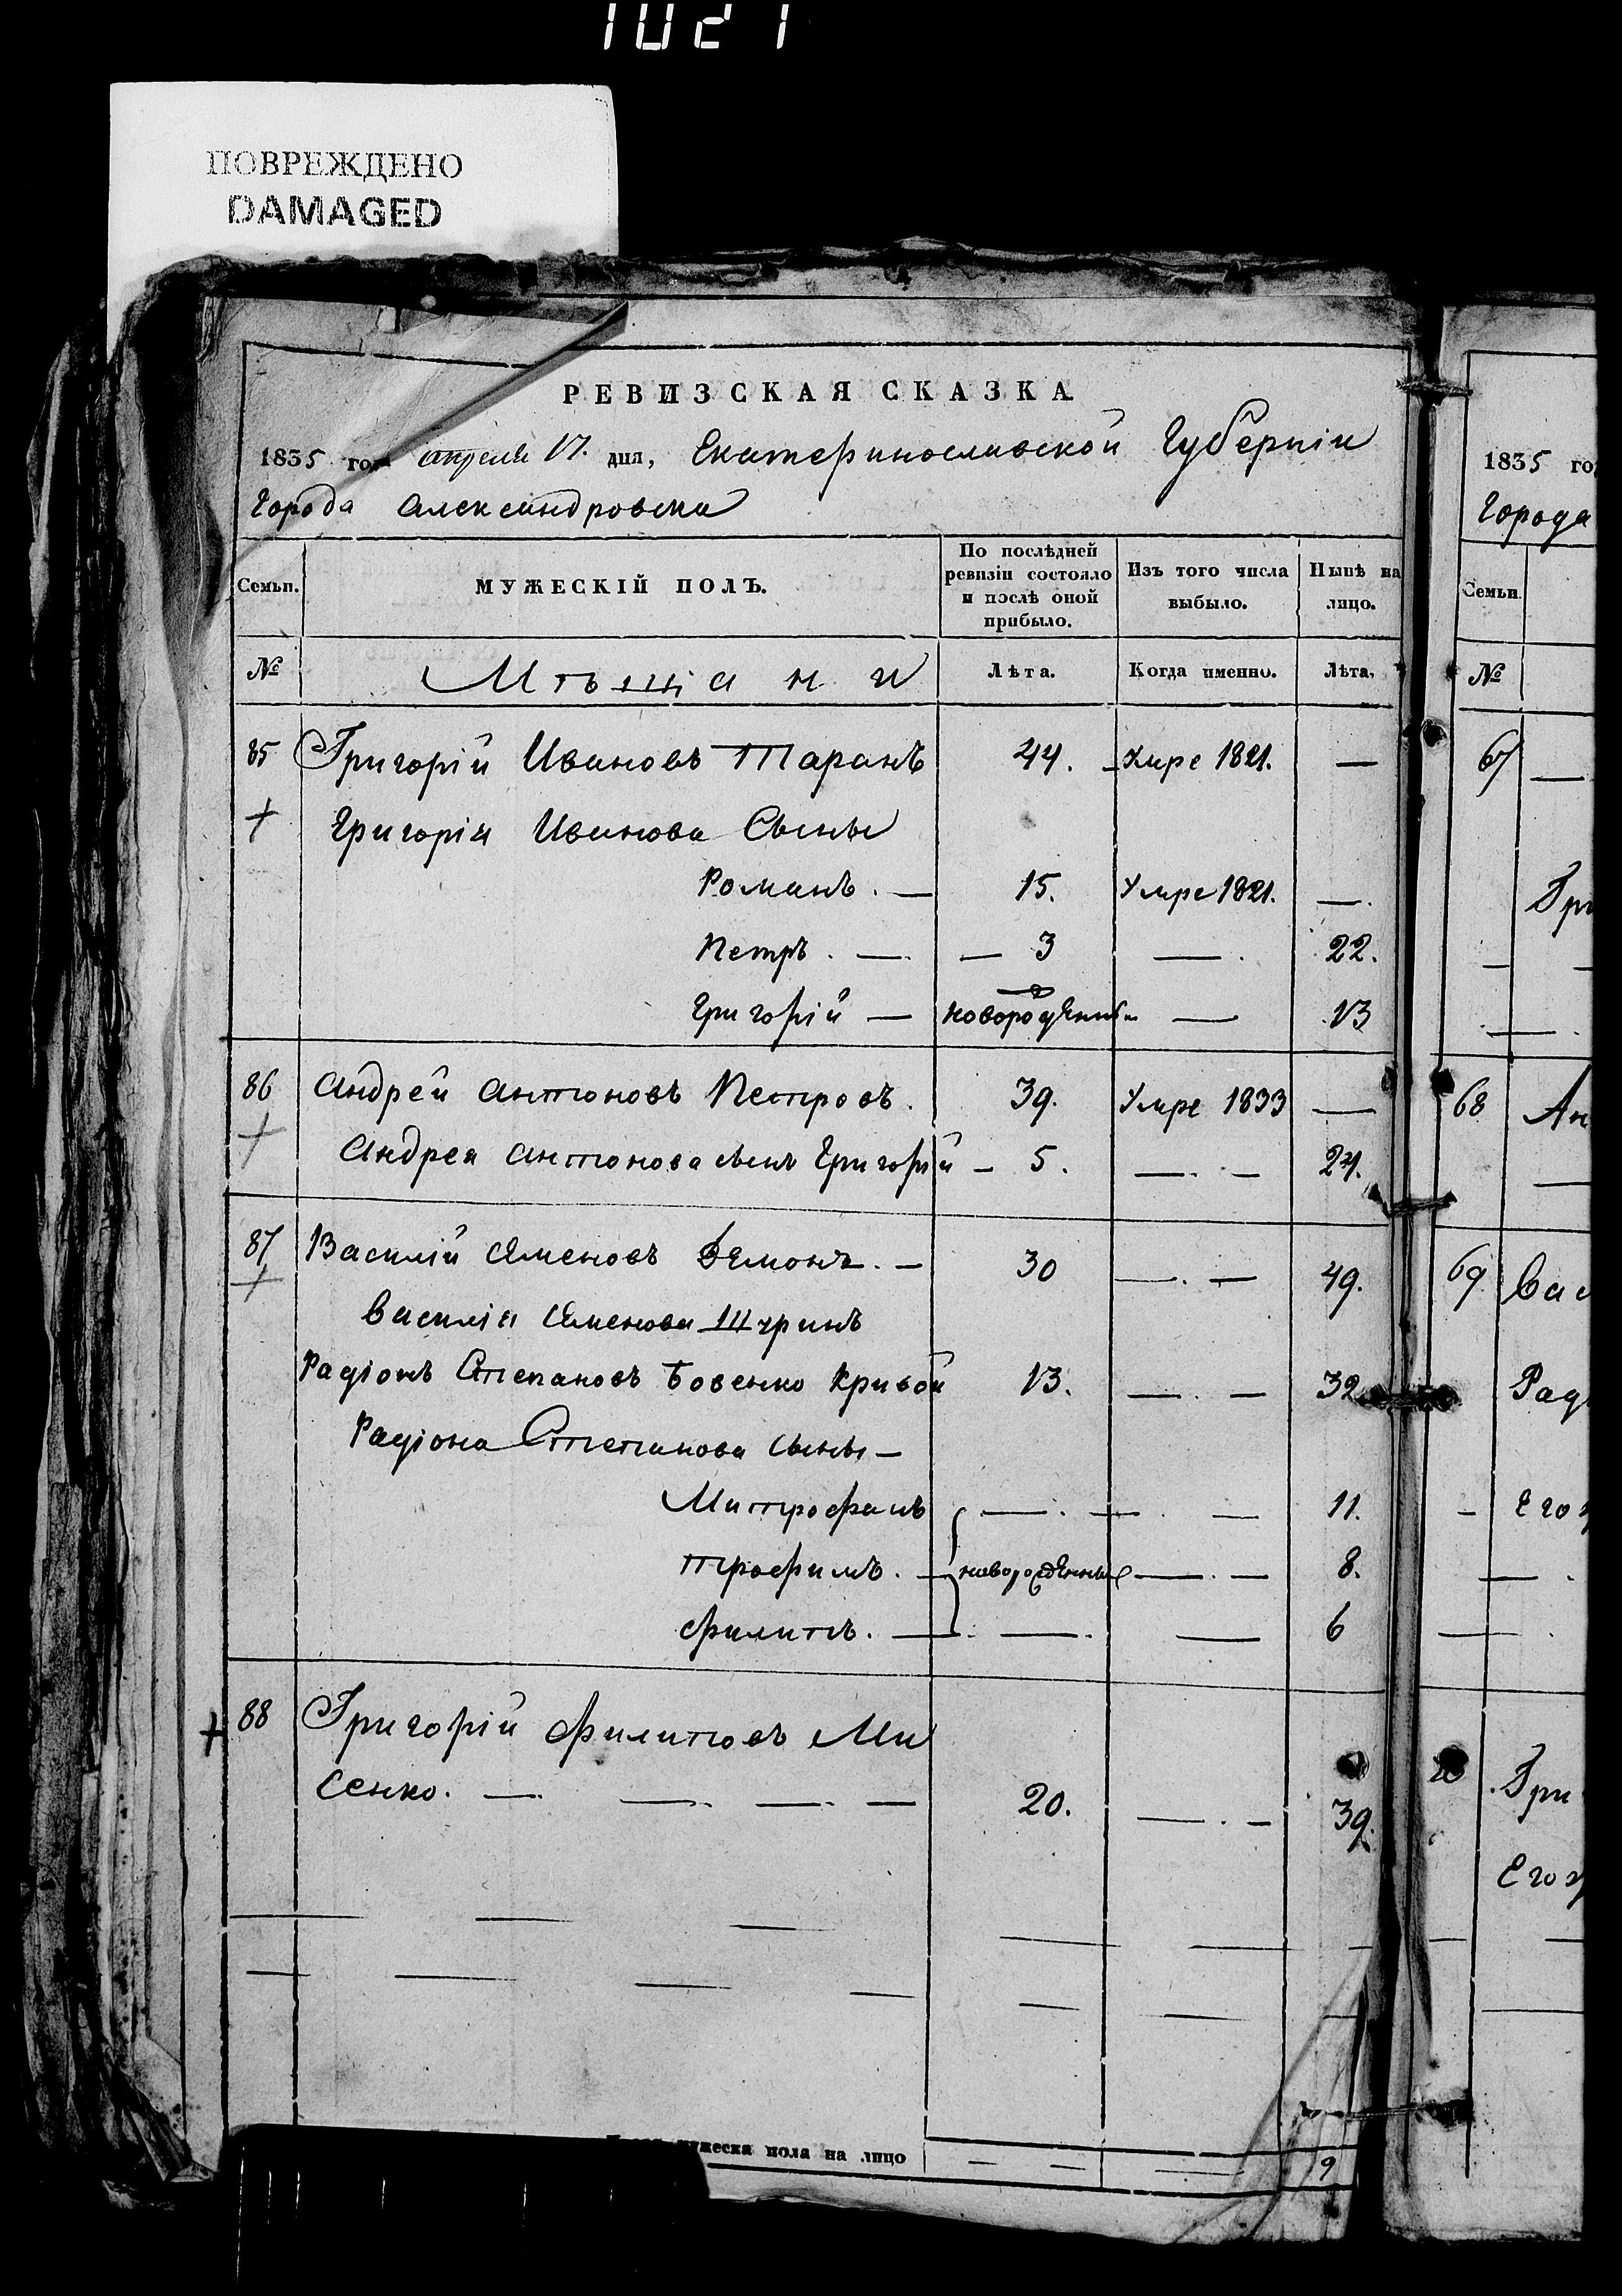 1021
ПОВРЕЖДЕНО
DAMAGED
РЕВИЗСКАЯ СКАЗКА
1835 года апреля 17. дня, Екатеринославской Губерніи
Города Александровска
Семьи. МУЖЕСКІЙ ПОЛЪ. По послѣдней ревизіи состояло и послѣ оной прибыло. Изъ того числа выбыло. Нынѣ на лицо.
№ Мѣщіани Лѣта. Когда именно. Лѣта.
85 Григорій Ивановъ Таранъ 44. Умре 1821. —
+ Григорія Иванова Сыны
Романъ. — 15. Умре 1821. —.
Петръ. —. — 3 —. 22.
Григорій — новорожденный — 13
86 Андрей Антоновъ Петровъ. 39. Умре 1833 —
+ Андрея Антонова сынъ Григорій — 5. —. — 24.
87 Василій Семеновъ Демонъ. — 30 —. — 49.
+ Василія Семенова Шуринъ
Радіонъ Степановъ Бовенко Кривой 13. —. — 32
Радіона Степанова сыны —
Митрофанъ —. — . — 11.
Трофимъ. — новорожденные —. — 8.
Филипъ. —. —. — 6
+ 88 Григорій Филиповъ Ми
сенко. —. —. —. — 20. —. — 39.
мужеска пола на лицо — — — 9
1835 го
Города
Семьи.
№
67 —
Гри
68 Ан
69 Вас
Рад
Его
Гри
Его